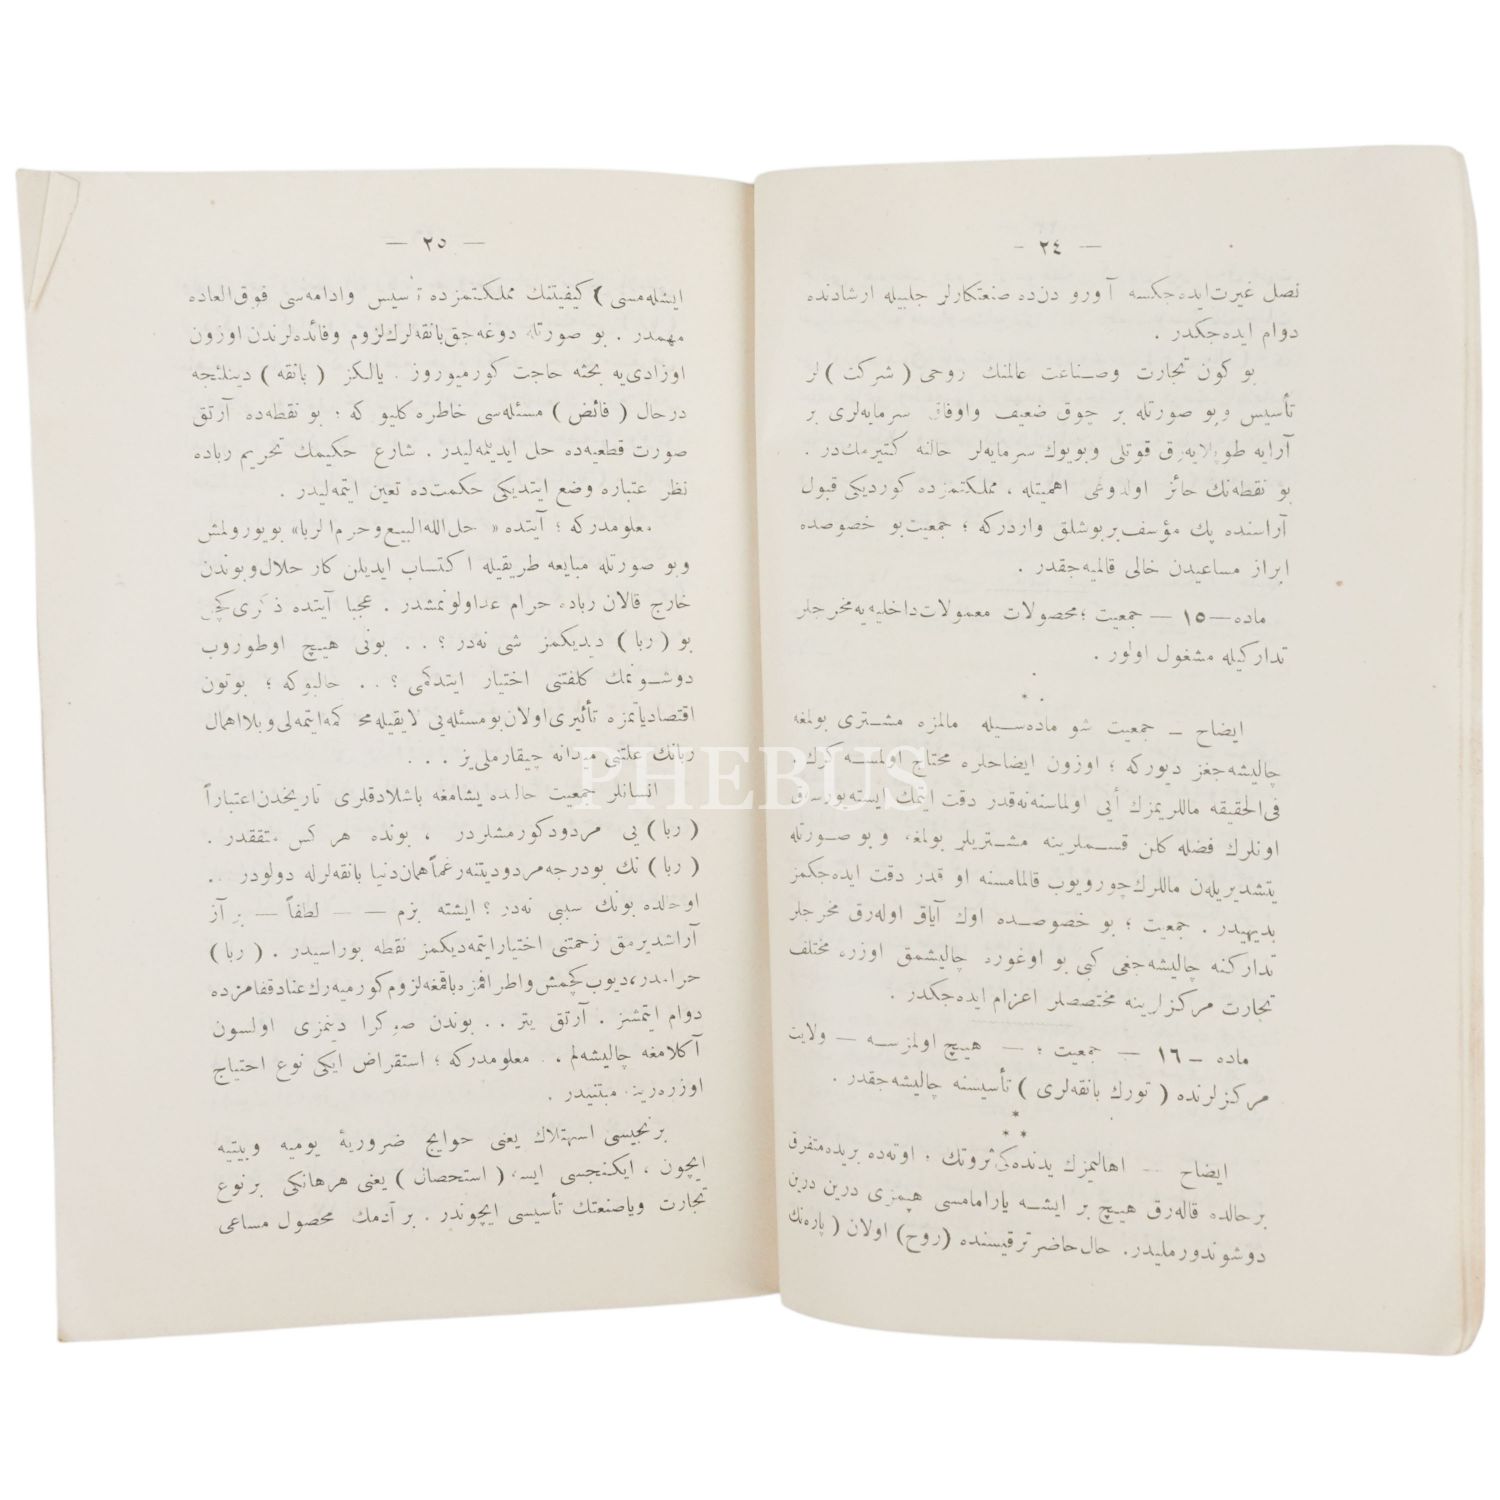 — ٢٤ —
نصل غیرت ایده‌جکسه آورو دن‌ده صنعتکارلر جلبیله ارشادنده
دوام ایده‌جکدر .
بو کون تجارت وصناعت عالمنك روحی ( شرکت ) لر
تأسیس وبو صورتله بر چوق ضعیف واوفاق سرمایه‌لری بر
آرایه طوپلایه‌رق قوتلی وبویوك سرمایه‌لر حالنه کتیرمك‌در .
بو نقطه‌نك حائز اولدوغی اهمیتله ، مملکتمزده کوردیکی قبول
آراسنده پك مؤسف بربوشلق واردرکه ؛ جمعیت‌بو خصوصده
ابراز مساعیدن خالی قالمیه‌جقدر .
ماده — ١٥ — جمعیت ؛ محصولات معمولات داخلیه‌یه مخرجلر
تدارکیله مشغول اولور .
ایضاح — جمعیت شو ماده‌سیله مالمزه مشتری بولمغه
چالیشه‌جغز دیورکه ؛ اوزون ایضاحلره محتاج اولمسه کرك.
فی‌الحقیقه ماللریمزك أیی اولماسنه‌نه‌قدر دقت ایتمك ایسته‌یورسه‌ق
اونلرك فضله کلن قسملرینه مشتریلر بولمغه وبو صورتله
یتشدیریلن ماللرك چورویوب قالمامسنه او قدر دقت ایده‌جکمز
بدیهیدر . جمعیت ؛ بو خصوصده اوك آیاق اوله‌رق مخرجلر
تدارکنه چالیشه‌جغی کبی بو اوغوره چالیشمق اوزره مختلف
تجارت مرکزلرینه مختصصلر اعزام ایده‌جکدر .
ماده — ١٦ — جمعیت ؛ — هیچ اولمزسه — ولایت
مرکزلرنده ( تورك بانقه‌لری ) تأسیسنه چالیشه‌جقدر .
* * *
ایضاح — اهالیمزك یدنده‌کی ثروتك ، اوته‌ده بریده متفرق
برحالده قاله‌رق هیچ بر ایشه یارامامسی هپمزی درین درین
دوشوندورملیدر. حال حاضر ترقیسنده (روح) اولان ( پاره‌نك
— ٢٥ —
ایشله‌مسی ) کیفیتنك مملکتمزده تأسیس وادامه‌سی فوق‌العاده
مهمدر . بو صورتله دوغه‌جق بانقه‌لرك لزوم وفائده‌لرندن اوزون
اوزادی‌یه بحثه حاجت کورمیوروز . یالکز ( بانقه ) دینلنجه
درحال ( فائض ) مسئله‌سی خاطره کلیو که ؛ بو نقطه‌ده آرتق
صورت قطعیه‌ده حل ایدیلمه‌لیدر . شارع حکیمك تحریم رباده
نظر عتباره وضع ایتدیکی حکمت‌ده تعین ایتمه‌لیدر .
معلومدرکه ؛ آیتده « حل الله البیع وحرم الربا» بویورولمش
وبو صورتله مبایعه طریقیله اکتساب ایدیلن کار حلال وبوندن
خارج قالان رباده حرام عداولونمشدر . عجبا آیتده ذکری کچن
بو ( ربا ) دیدیکمز شی نه‌در ؟ . . بونی هیچ اوطوروب
دوشونمك کلفتنی اختیار ایتدکمی ؟ . . حالبوکه ؛ بوتون
اقتصادیاتمزه تأثیری اولان بومسئله‌یی لایقیله محاکمه ایتمه‌لی وبلا اهمال
ربانك علتنی میدانه چیقارملی‌یز . . .
انسانلر جمعیت حالده یشامغه باشلادقلری تاریخدن اعتباراً
( ربا ) یی مردود کورمشلردر ، بونده هرکس متفقدر .
( ربا ) نك بودرجه مردودیتنه رغماً همان دنیا بانقه‌لرله دولودر . .
اوحالده بونك سببی نه‌در ؟ ایشته بزم — — لطفاً — بر آز
آراشدیرمق زحمتنی اختیار ایتمه‌دیکمز نقطه بوراسیدر . ( ربا )
حرامدر، دیوب کچمش واطرافمزه باقمغه لزوم کورمیه‌رك عنادقفامزده
دوام ایتمشز . آرتق یتر . . بوندن صوکرا دینمزی اولسون
آکلامغه چالیشه‌لم . . معلومدرکه ؛ استقراض ایکی نوع احتیاج
اوزره‌رینه مبتنیدر .
برنجیسی استهلاك یعنی حوایج ضروریهٔ یومیه وبیتیه
ایچون ، ایکنجسی ایسه ( استحصال ) یعنی هرهانکی برنوع
تجارت ویاصنعتك تأسیسی ایچوندر . بر آدمك محصول مساعی
PHEBUS